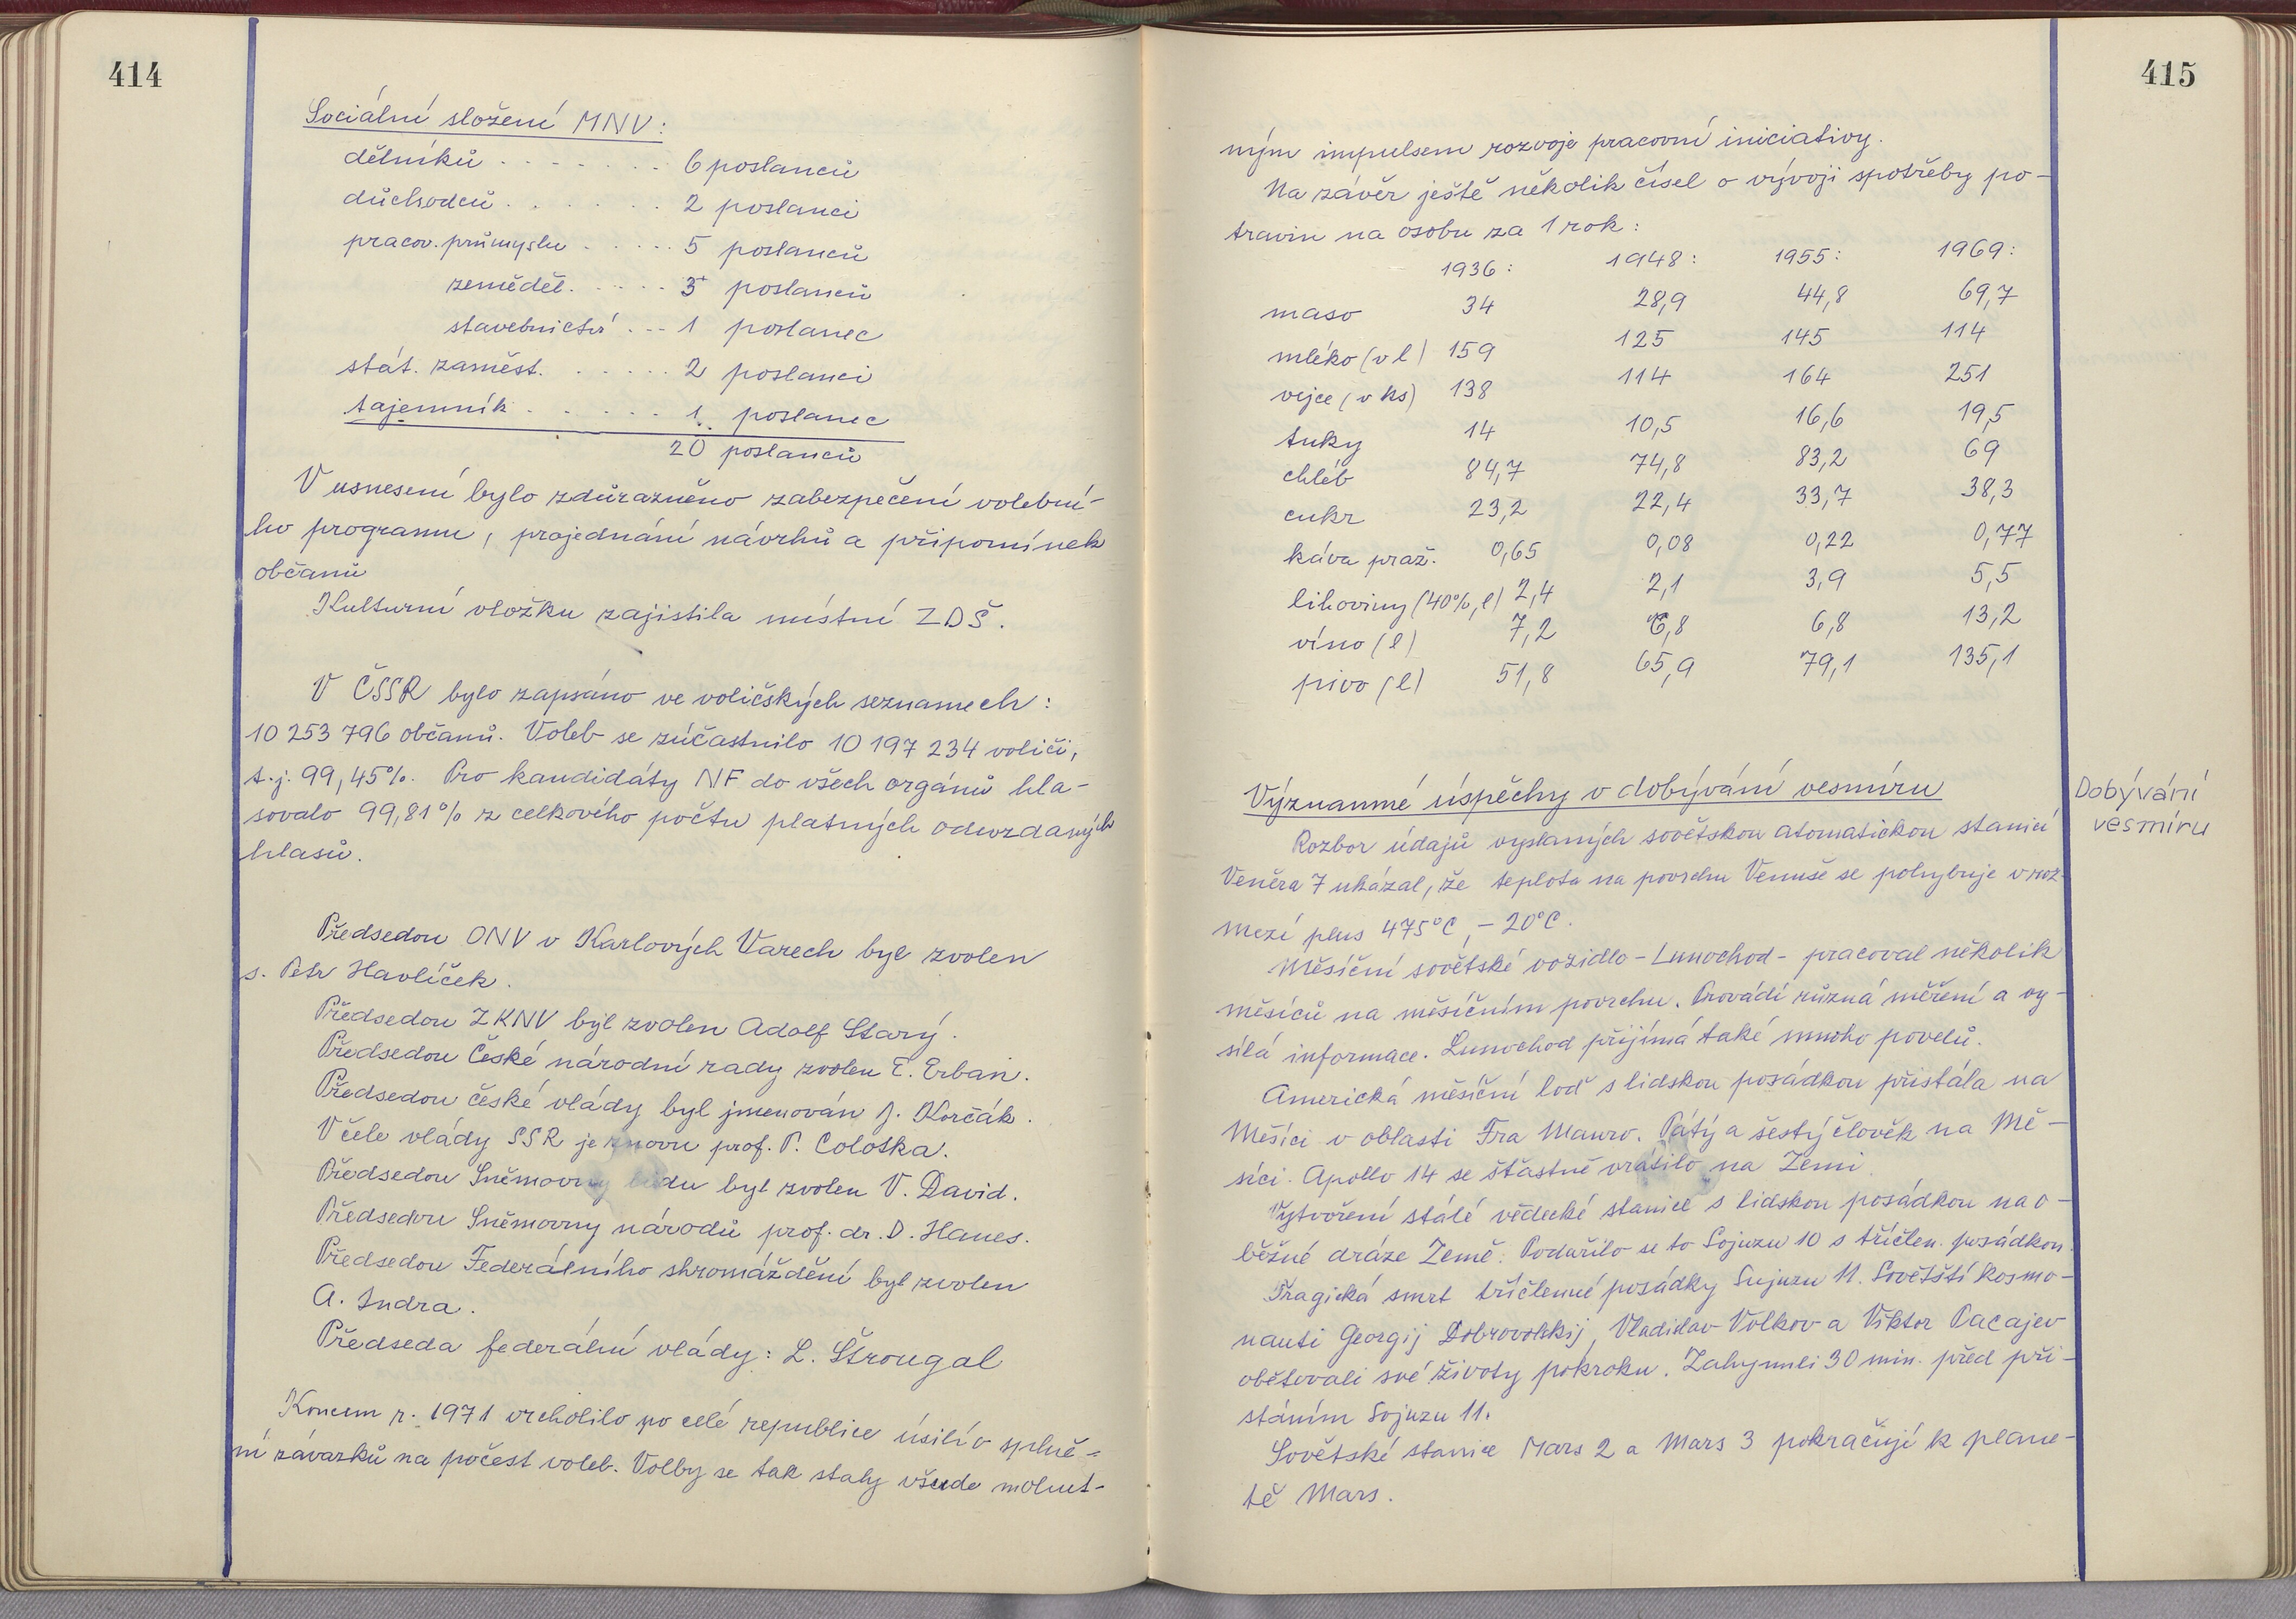 414
Sociální složení MNV:
dělníků . . . . . . . 6 poslanců
důchodců . . . . . . 2 poslanci
pracov. průmyslu . . . . . 5 poslanců
zeměděl. . . . . . 3 poslanců
stavebnictví . . . 1 poslanec
stát. zaměst. . . . . . 2 poslanci
tajemník . . . . . . 1 poslanec
20 poslanců
V usnesení bylo zdůrazněno zabezpečení volební-
ho programu, projednání návrhů a připomínek
občanů
Kulturní vložku zajistila místní ZDŠ.
V ČSSR bylo zapsáno ve voličských seznamech:
10 253 796 občanů. Voleb se zúčastnilo 10 197 234 voliči,
t.j. 99,45%. Pro kandidáty NF do všech orgánů hla-
sovalo 99,81% z celkového počtu platných odevzdaných
hlasů.
Předsedou ONV v Karlových Varech byl zvolen
s. Petr Havlíček.
Předsedou ZKNV byl zvolen Adolf Starý.
Předsedou České národní rady zvolen E. Erban.
Předsedou české vlády byl jmenován J. Korčák.
V čele vlády SSR je znovu prof. P. Colotka.
Předsedou Sněmovny lidu byl zvolen V. David.
Předsedou Sněmovny národů prof. dr. D. Hanes.
Předsedou Federálního shromáždění byl zvolen
A. Indra.
Předseda federální vlády: L. Štrougal
Koncem r. 1971 vrcholilo po celé republice úsilí o splně-
ní závazků na počest voleb. Volby se tak staly všude mohut-
415
ným impulsem rozvoje pracovní iniciativy.
Na závěr ještě několik čísel o vývoji spotřeby po-
travin na osobu za 1 rok:
1936: 1948: 1955: 1969:
maso 34 28,9 44,8 69,7
mléko (v l) 159 125 145 114
vejce (v ks) 138 114 164 251
tuky 14 10,5 16,6 19,5
chléb 84,7 74,8 83,2 69
cukr 23,2 22,4 33,7 38,3
káva praž. 0,65 0,08 0,22 0,77
lihoviny (40%, l) 2,4 2,1 3,9 5,5
víno (l) 7,2 6,8 6,8 13,2
pivo (l) 51,8 65,9 79,1 135,1
Významné úspěchy v dobývání vesmíru
Dobývání
vesmíru
Rozbor údajů vyslaných sovětskou atomatickou stanicí
Veněra 7 ukázal, že teplota na povrchu Venuše se pohybuje v roz-
mezí plus 475°C, - 20°C.
Měsíční sovětské vozidlo - Lunochod - pracoval několik
měsíců na měsíčním povrchu. Provádí různá měření a vy-
sílá informace. Lunochod přijímá také mnoho povelů.
Americká měsíční loď s lidskou posádkou přistála na
Měsíci v oblasti Fra Mauro. Pátý a šestý člověk na Mě-
síci. Apollo 14 se šťastně vrátilo na Zemi.
Vytvoření stálé vědecké stanice s lidskou posádkou na o-
běžné dráze Země. Podařilo se to Sojuzu 10 s tříčlen. posádkou.
Tragická smrt tříčlenné posádky Sojuzu 11. Sovětští kosmo-
nauti Georgij Dobrovolskij, Vladislav Volkov a Viktor Pacajev
obětovali své životy pokroku. Zahynuli 30 min. před při-
stáním Sojuzu 11.
Sovětské stanice Mars 2 a Mars 3 pokračují k plane-
tě Mars.